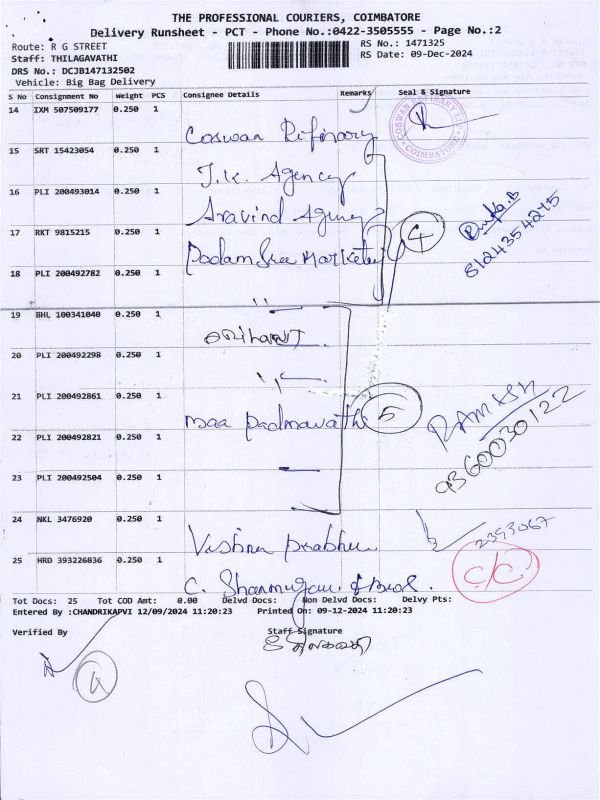 THE PROFESSIONAL COURIERS, COIMBATORE
Delivery Runsheet - PCT - Phone No.:0422-3505555 - Page No.:2
Route: R G STREET
RS No.: 1471325
Staff: THILAGAVATHI
RS Date: 09-Dec-2024
DRS No.: DCJB147132502
Vehicle: Big Bag Delivery
S No Consignment No Weight PCS Consignee Details Remarks Seal & Signature
14 IXM 507509177 0.250 1 Coswan Refinary
COIMBATORE
15 SRT 15423054 0.250 1 J.K. Agency
16 PLI 200493014 0.250 1 Aravind Agency
17 RKT 9815215 0.250 1 Padam Sree Marketing
4
8124354245
18 PLI 200492782 0.250 1 "
19 BHL 100341040 0.250 1
20 PLI 200492298 0.250 1 "
21 PLI 200492861 0.250 1 maa padmavathi
5
RAMESH
9360030122
22 PLI 200492821 0.250 1
23 PLI 200492504 0.250 1
24 NKL 3476920 0.250 1 Vishnu prabhu
2393067
25 HRD 393226836 0.250 1 C. Shanmugam & Bros.
C/C
Tot Docs: 25 Tot COD Amt: 0.00 Delvd Docs: Non Delvd Docs: Delvy Pts:
Entered By :CHANDRIKAPVI 12/09/2024 11:20:23 Printed On: 09-12-2024 11:20:23
Verified By
Staff Signature